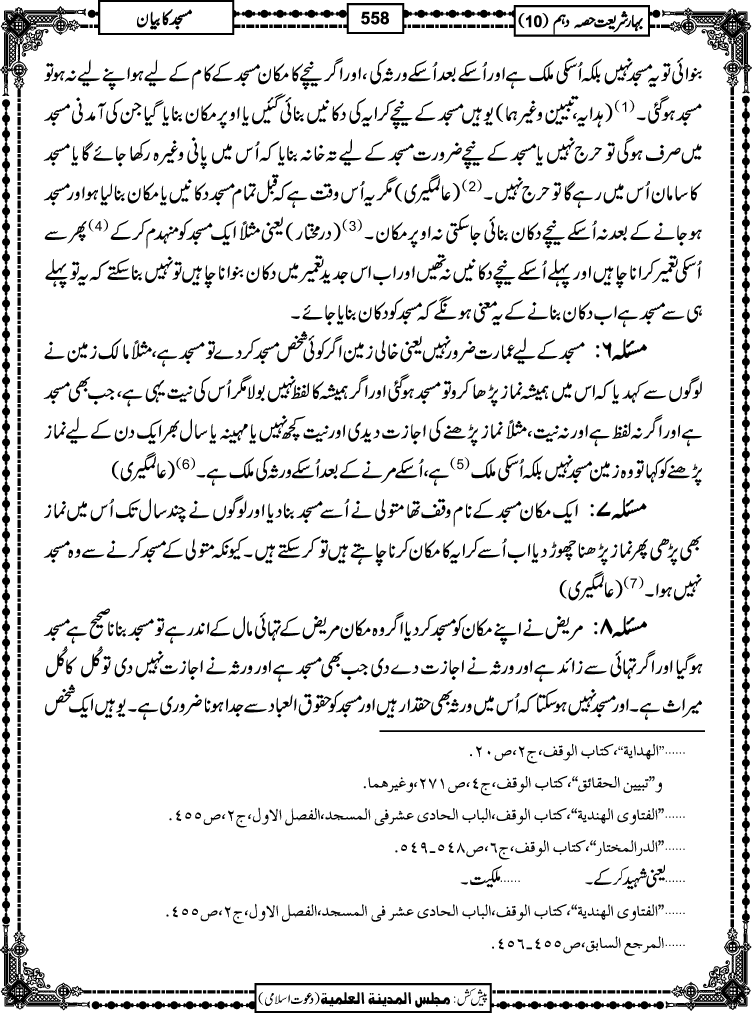 بہارشریعت حصہ دہم (10)
558
مسجد کا بیان
بنوائی تو یہ مسجد نہیں بلکہ اُسکی ملک ہے اور اُسکے بعد اُسکے ورثہ کی، اور اگر نیچے کا مکان مسجد کے کام کے لیے ہو اپنے لیے نہ ہو تو
مسجد ہوگئی۔(1) (ہدایہ، تبیین وغیرہما) یوہیں مسجد کے نیچے کرایہ کی دکانیں بنائی گئیں یا اوپر مکان بنایا گیا جن کی آمدنی مسجد
میں صرف ہوگی تو حرج نہیں یا مسجد کے نیچے ضرورت مسجد کے لیے تہ خانہ بنایا کہ اُس میں پانی وغیرہ رکھا جائے گا یا مسجد
کا سامان اُس میں رہے گا تو حرج نہیں۔(2) (عالمگیری) مگر یہ اُس وقت ہے کہ قبل تمام مسجد دکانیں یا مکان بنالیا ہو اور مسجد
ہوجانے کے بعد نہ اُسکے نیچے دکان بنائی جاسکتی نہ اوپر مکان۔(3) (درمختار) یعنی مثلاً ایک مسجد کو منہدم کرکے(4) پھر سے
اُسکی تعمیر کرانا چاہیں اور پہلے اُسکے نیچے دکانیں نہ تھیں اور اب اس جدید تعمیر میں دکان بنوانا چاہیں تو نہیں بناسکتے کہ یہ تو پہلے
ہی سے مسجد ہے اب دکان بنانے کے یہ معنی ہونگے کہ مسجد کو دکان بنایا جائے۔
مسئلہ ۶: مسجد کے لیے عمارت ضرور نہیں یعنی خالی زمین اگر کوئی شخص مسجد کردے تو مسجد ہے، مثلاً مالک زمین نے
لوگوں سے کہدیا کہ اس میں ہمیشہ نماز پڑھا کرو تو مسجد ہوگئی اور اگر ہمیشہ کا لفظ نہیں بولا مگر اُس کی نیت یہی ہے، جب بھی مسجد
ہے اور اگر نہ لفظ ہے اور نہ نیت، مثلاً نماز پڑھنے کی اجازت دیدی اور نیت کچھ نہیں یا مہینہ یا سال بھر ایک دن کے لیے نماز
پڑھنے کو کہا تو وہ زمین مسجد نہیں بلکہ اُسکی ملک(5) ہے، اُسکے مرنے کے بعد اُسکے ورثہ کی ملک ہے۔(6) (عالمگیری)
مسئلہ ۷: ایک مکان مسجد کے نام وقف تھا متولی نے اُسے مسجد بنادیا اور لوگوں نے چند سال تک اُس میں نماز
بھی پڑھی پھر نماز پڑھنا چھوڑ دیا اب اُسے کرایہ کا مکان کرنا چاہتے ہیں تو کرسکتے ہیں۔ کیونکہ متولی کے مسجد کرنے سے وہ مسجد
نہیں ہوا۔(7) (عالمگیری)
مسئلہ ۸: مریض نے اپنے مکان کو مسجد کردیا اگر وہ مکان مریض کے تہائی مال کے اندر ہے تو مسجد بنانا صحیح ہے مسجد
ہوگیا اور اگر تہائی سے زائد ہے اور ورثہ نے اجازت دے دی جب بھی مسجد ہے اور ورثہ نے اجازت نہیں دی تو کُل کا کُل
میراث ہے۔ اور مسجد نہیں ہوسکتا کہ اُس میں ورثہ بھی حقدار ہیں اور مسجد کو حقوق العباد سے جدا ہونا ضروری ہے۔ یوہیں ایک شخص
......”الھدایة“،کتاب الوقف،ج۲،ص۲۰.
و”تبیین الحقائق“،کتاب الوقف،ج٤،ص۲۷۱،وغیرھما.
......”الفتاوی الھندیة“،کتاب الوقف،الباب الحادی عشرفی المسجد،الفصل الاول،ج۲،ص٤٥٥.
......”الدرالمختار“،کتاب الوقف،ج٦،ص٥٤٨-٥٤٩.
......یعنی شہید کرکے۔ ......ملکیت۔
......”الفتاوی الھندیة“،کتاب الوقف،الباب الحادی عشر فی المسجد،الفصل الاول،ج۲،ص٤٥٥.
......المرجع السابق،ص٤٥٥-٤٥٦.
پیش کش: مجلس المدینة العلمیة (دعوت اسلامی)